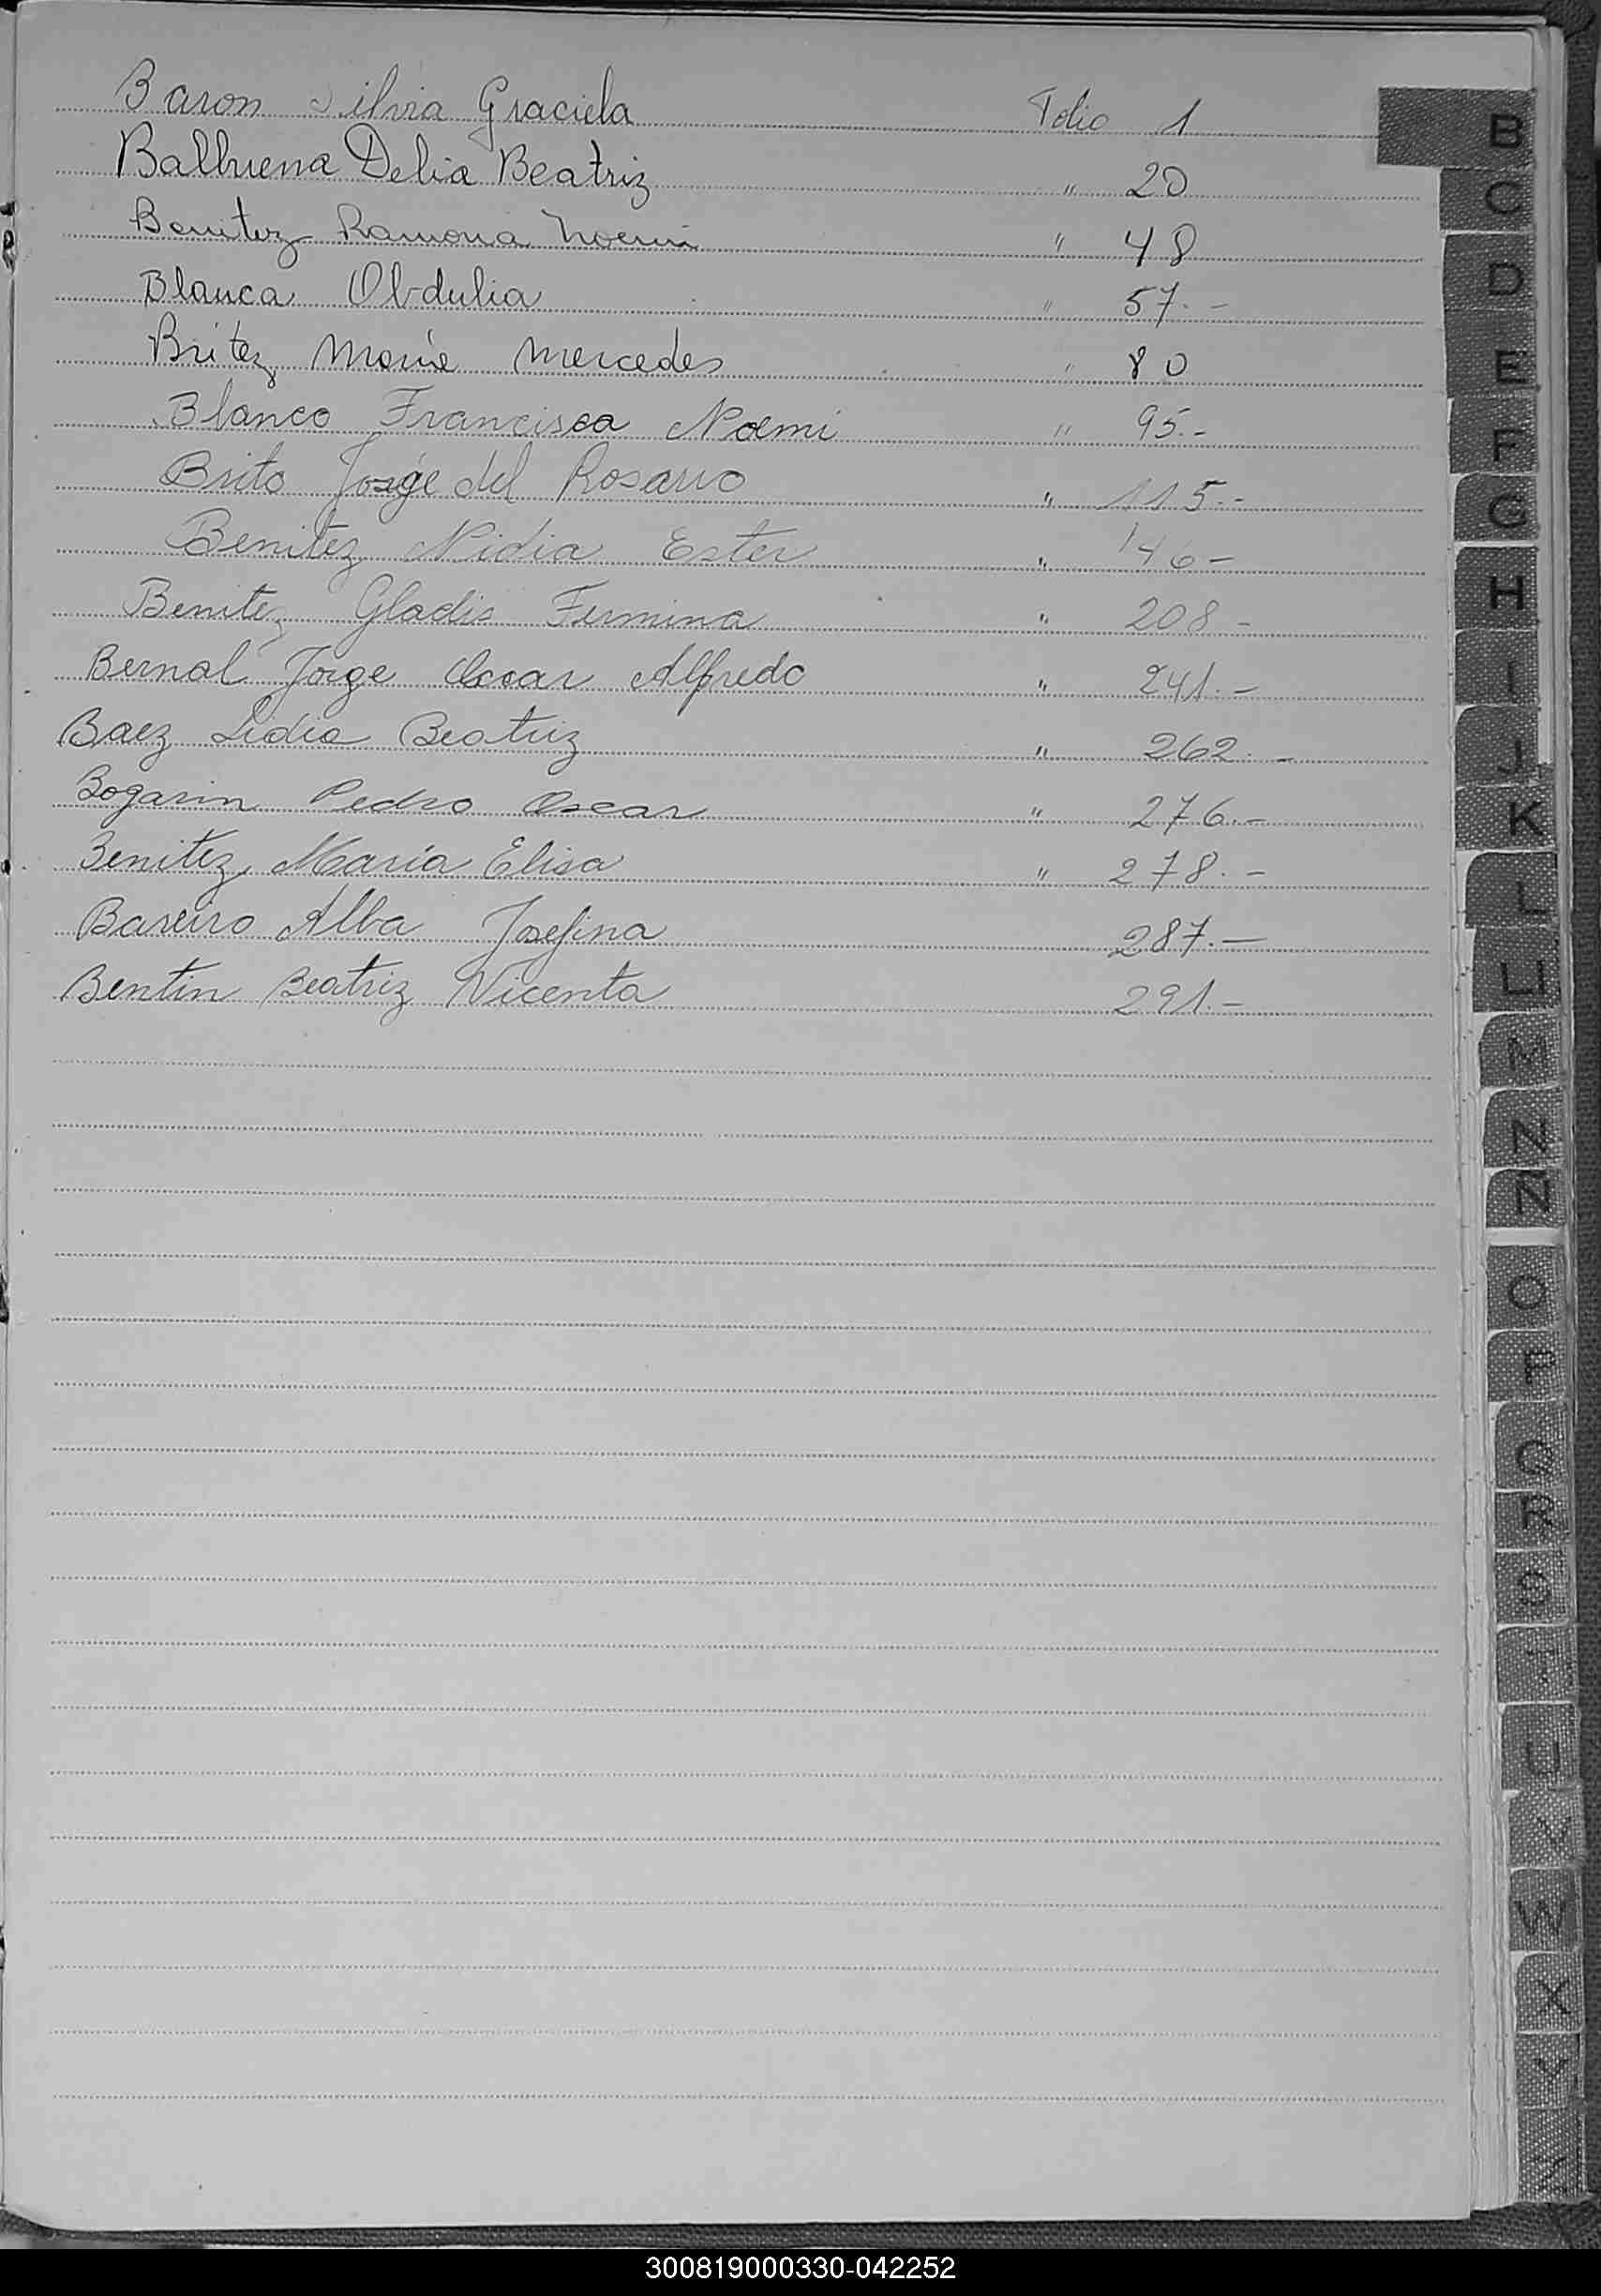 Baron Silvia Graciela Folio 1
Balbuena Delia Beatriz " 20
Benitez Ramona Noemi " 48
Blanca Obdulia " 57.-
Britez Maria Mercedes " 80
Blanco Francisca Noemi " 95.-
Brito Jorge del Rosario " 115.-
Benitez Nidia Ester " 146-
Benitez Gladis Fermina " 208-
Bernal Jorge Oscar Alfredo " 241.-
Baez Lidia Beatriz " 262.-
Bogarin Pedro Oscar " 276.-
Benitez Maria Elisa " 278.-
Bareiro Alba Josefina 287.-
Bentin Beatriz Vicenta 291.-
B
C
D
E
F
G
H
I
J
K
L
Ll
M
N
Ñ
O
P
Q
R
S
T
U
V
W
X
Y
300819000330-042252